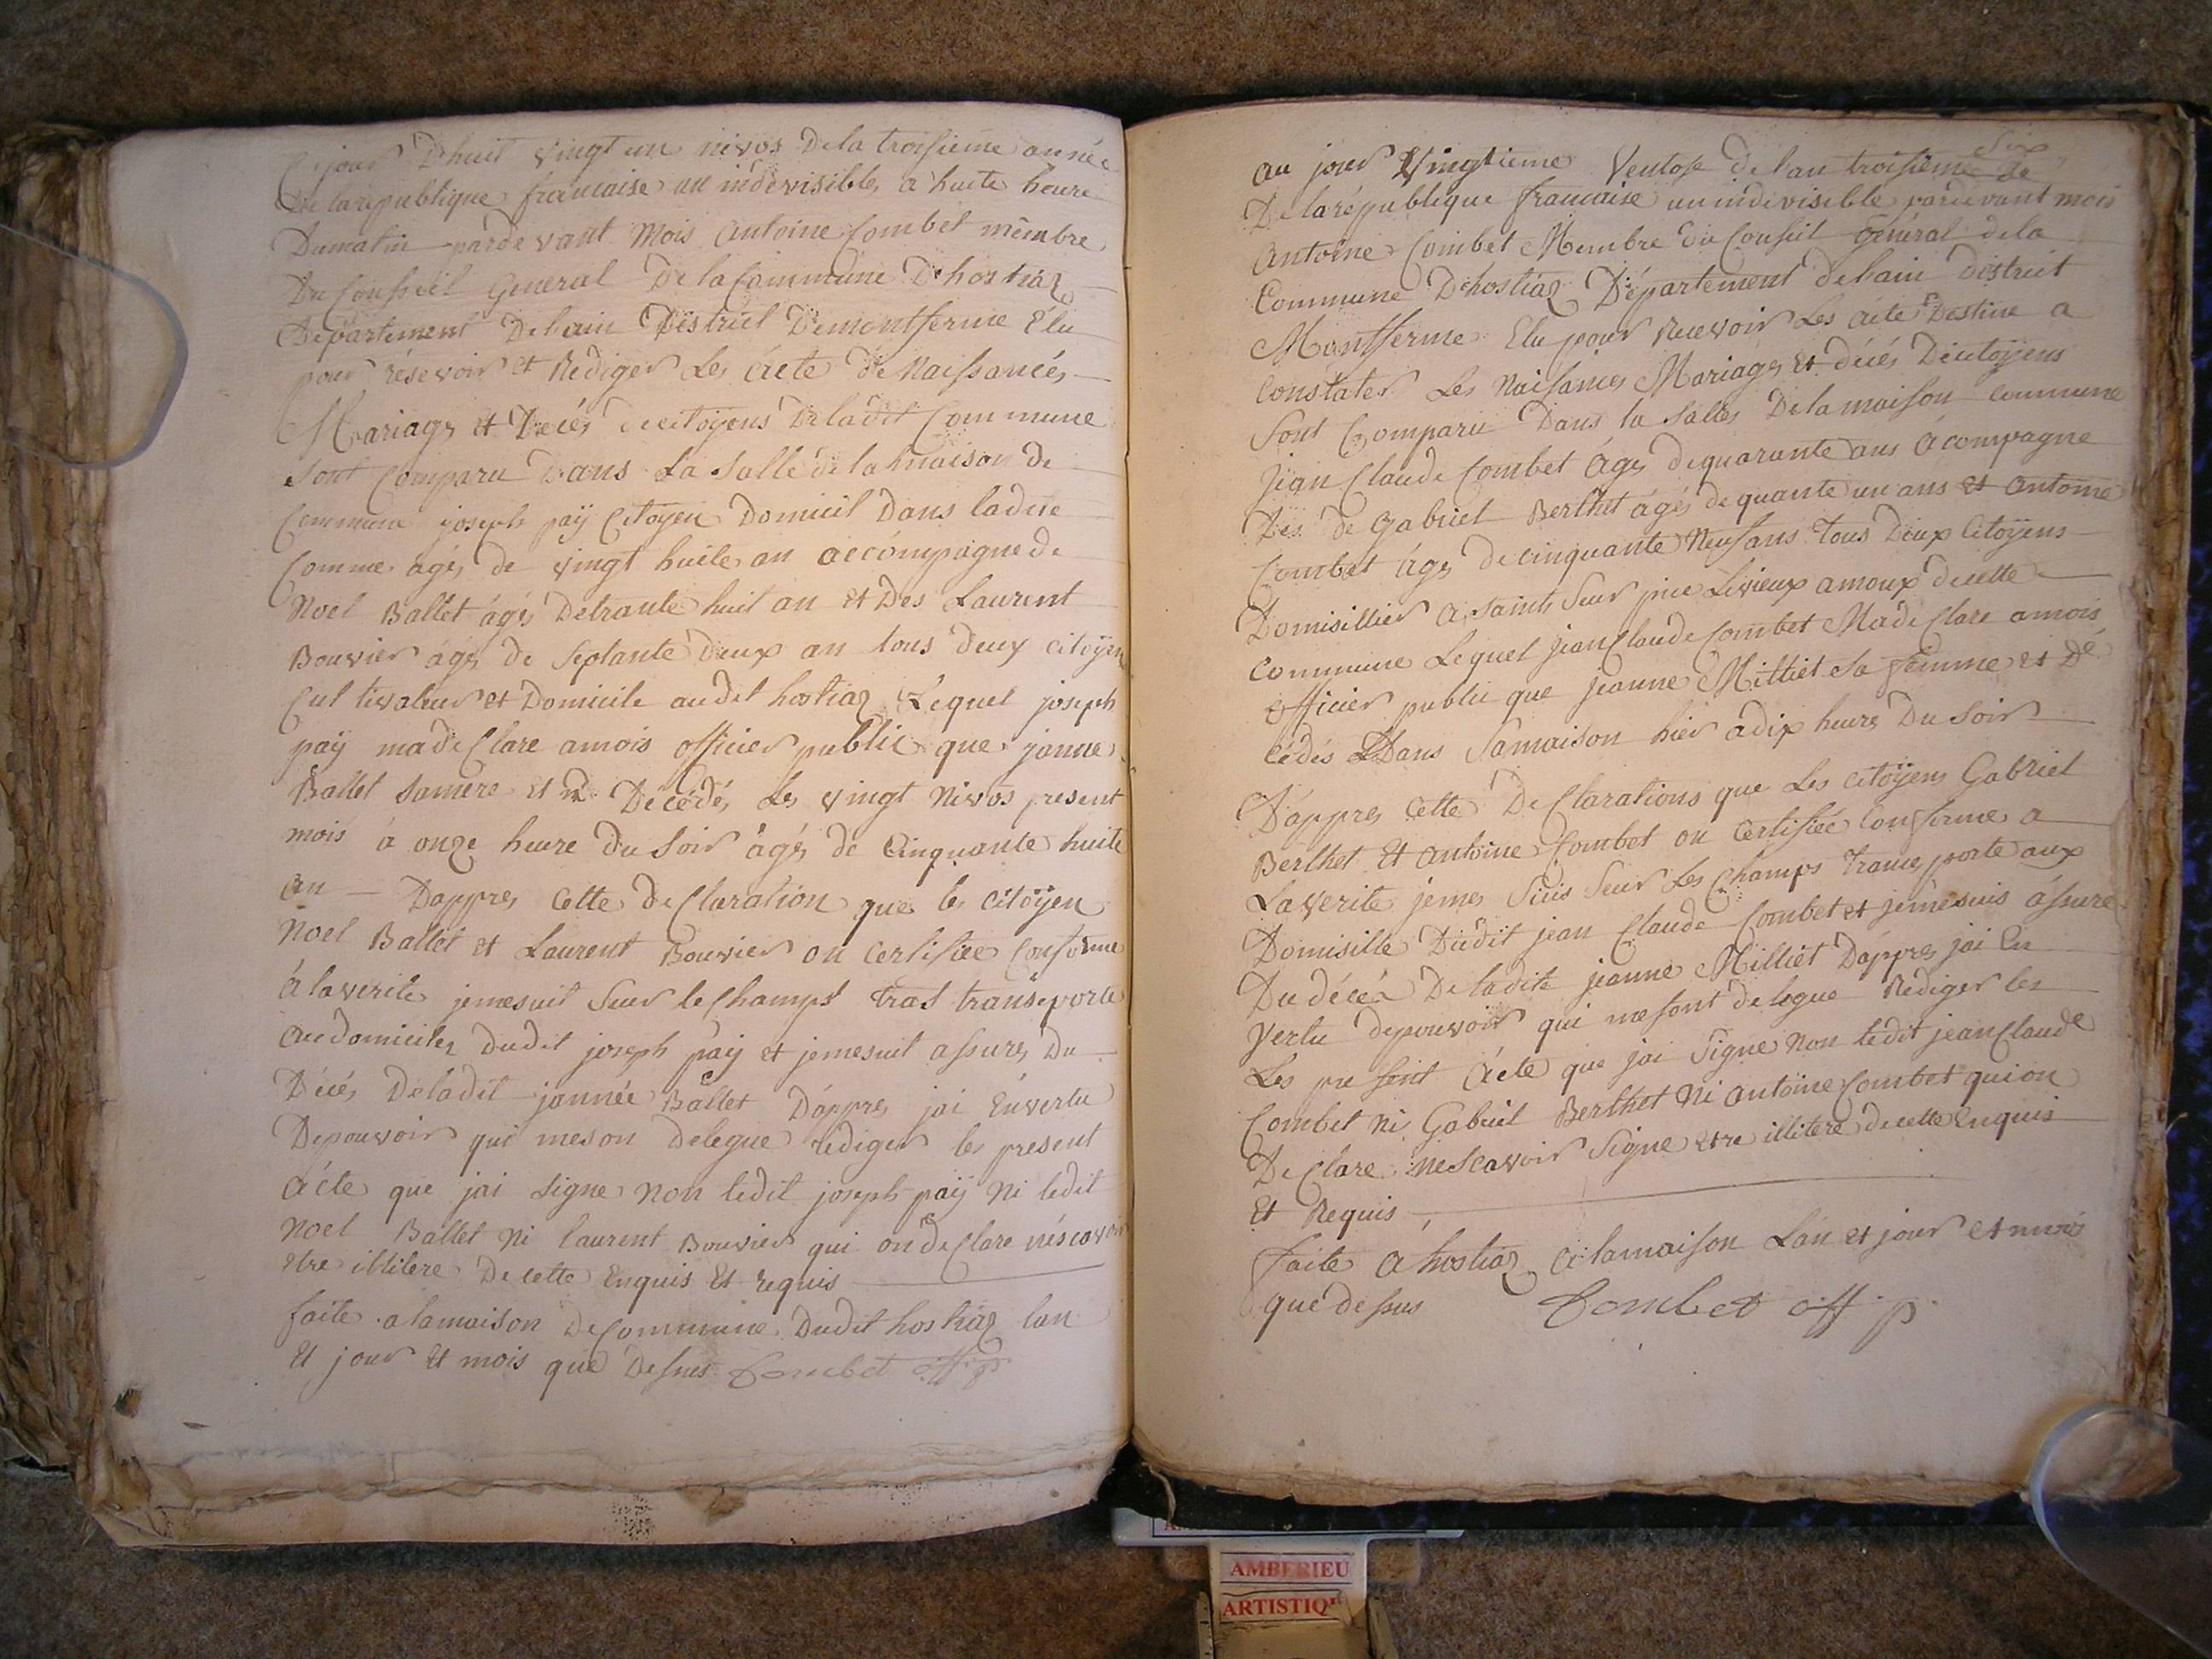 Ce jour Dhuit vingt un nivos Dela troisieme année
De larépublique francaise un indévisible a huite heure
Dumatin pardevant Mois Antoine Combet mêmbre
Du Conseiel General De la Commune Dhostiaz
Département Delain District Demontferme Elu
pour résevoir et Rediger Les Acte de Naissancés
Mariages et Décés de citoyens De ladit Commune
sont Comparu Dans La salle de la maison de
Commune joseph paÿ Citoyen Domicil Dans ladite
Comme agés de vingt huite an accompagne de
Noel Ballet agés Detrante huit an et Des Laurent
Bouvier agés de Septante deux an tous deux Citoÿens
Cul tivateur et Domicile audit hostiaz Lequel joseph
paÿ madeClare amois officier public que janne
Ballet Samere et Décédés Les vingt Nivos present
mois à onze heure Du Soir âgés de Cinquante huite
an — Dappres Cette deClaration que le Citoÿen
Noel Ballet et Laurent Bouvier on Certifiée Conforme
à laverite jemesuit Seur le Champs tras transeporte
Audomiciles dudit joseph paÿ et jemesuit assures Du
Décés Deladit jannée Ballet Dáppres jai Envertu
Depouvoir qui meson Delegue rediger les present
Acte que jai signe Non ledit joseph paÿ Ni ledit
Noel Ballet Ni laurent Bouvier qui ondeClare néscavoir
Etre illitere De cette Enquis Et requis
faite a lamaison DeCommune Dudit hostiaz lan
Et jour Et mois que Dessus Combet off p
au jour Vingtieme Ventose de lan troisieme Six
De larépublique francaise un indevisible pardevant mois
Antoine Combet Membre du Conseil Général dela
Commune Dehostiaz Département delain district
Montferme Elu pour Recevoir Les acte Destine a
Constater Les Naisances Mariages et décés Decitoÿens
Sont Comparu Dans la Salles De la maison commune
Jean Claude Combet Ages dequarante ans acompagne
Des de Gabriel Berthet âgés de quante un ans et Antoine
Combet âges decinquante Neuf ans Tous Deux Citoÿens
Domisillier A Saint Seur Levieux amoux decette
Commune Lequel jeanClaude Combet MadeClare amois
officier public que jeanne Milliet Sa femme et Dé
cédés Dans Samaison hier adix heures Du Soir
Dáppres Cette DeClarations que Les Citoÿens Gabriel
Berthet Et Antoine Combet on Certifiée Conforme a
Laverite jemes Suis Seur Les Champs Transporte aux
Domisille Dudit jean Claude Combet et jemesuis ássure
Du décés De ladite jeanne Milliet Dappres jai En
Vertu depouvoir qui mesont delegue Rediger les
Les pre sent Acte que jai Signe Non ledit jeanClaude
Combet ni Gabriel Berthet Ni Antoine Combet qui on
DeClare nescavoir Signe Etre illitere decette Enquis
Et Requis
faite A hostiaz a lamaison Lan et jour et mois
que dessus Combet off p
AMBERIEU
ARTISTIQ